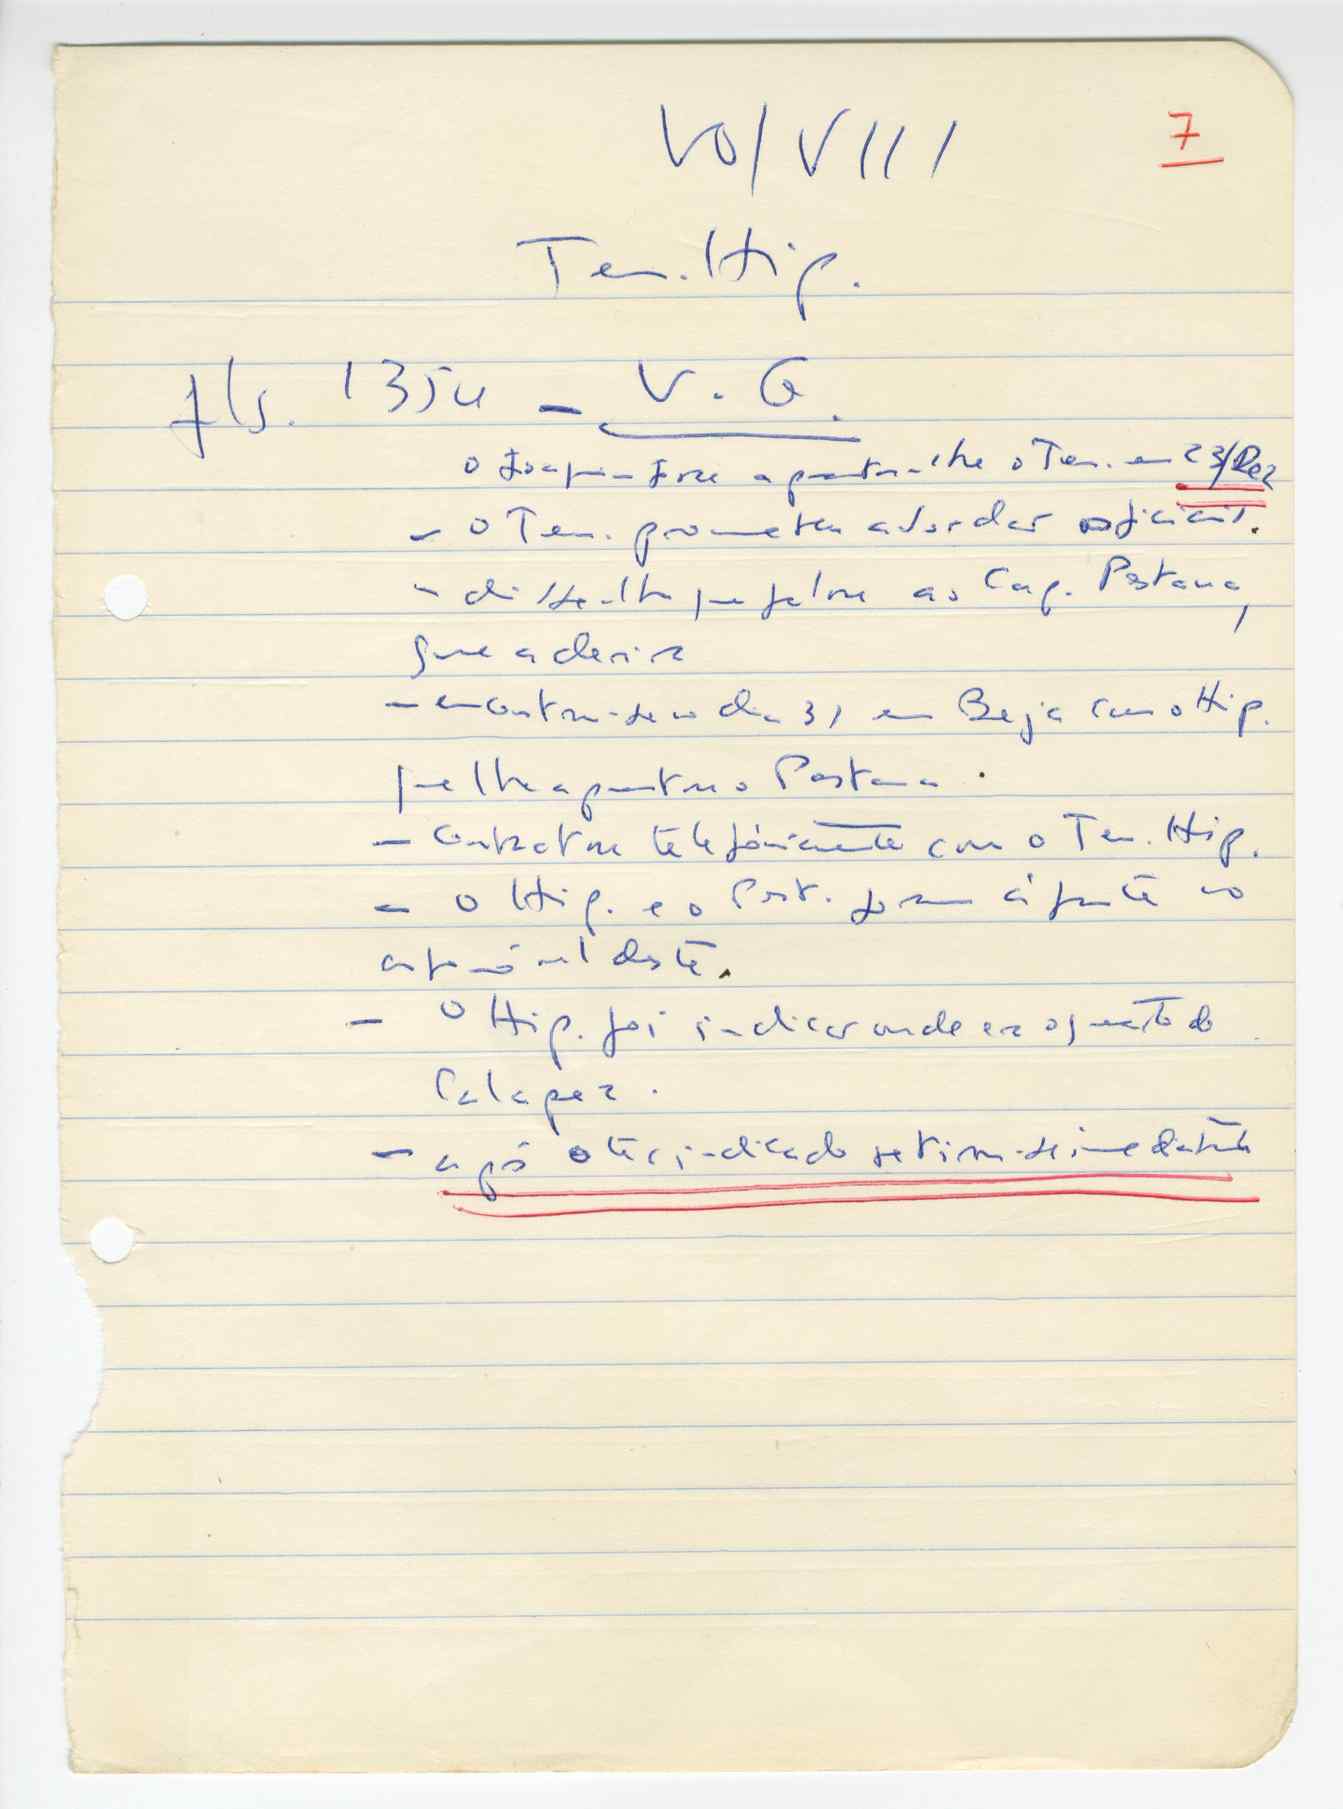 VO/VIII
7
Ten. Hip.
fls. 1354 - V. G.
o Joaquim José apresentou-lhe o Ten. em 23/Dez
- O Ten. prometeu abordar oficiais.
- disse-lhe que falou ao Cap. Pestana,
que aderira
- encontrou-se no dia 31 em Beja com o Hip.
que lhe apresentou o Pestana.
- Contactou telefonicamente com o Ten. Hip.
- O Hip. e o Pest. foram à frente no
automóvel deste.
- O Hip. foi indicar onde era o quarto do
Calapez.
- após o ter indicado retirou-se imediatamente